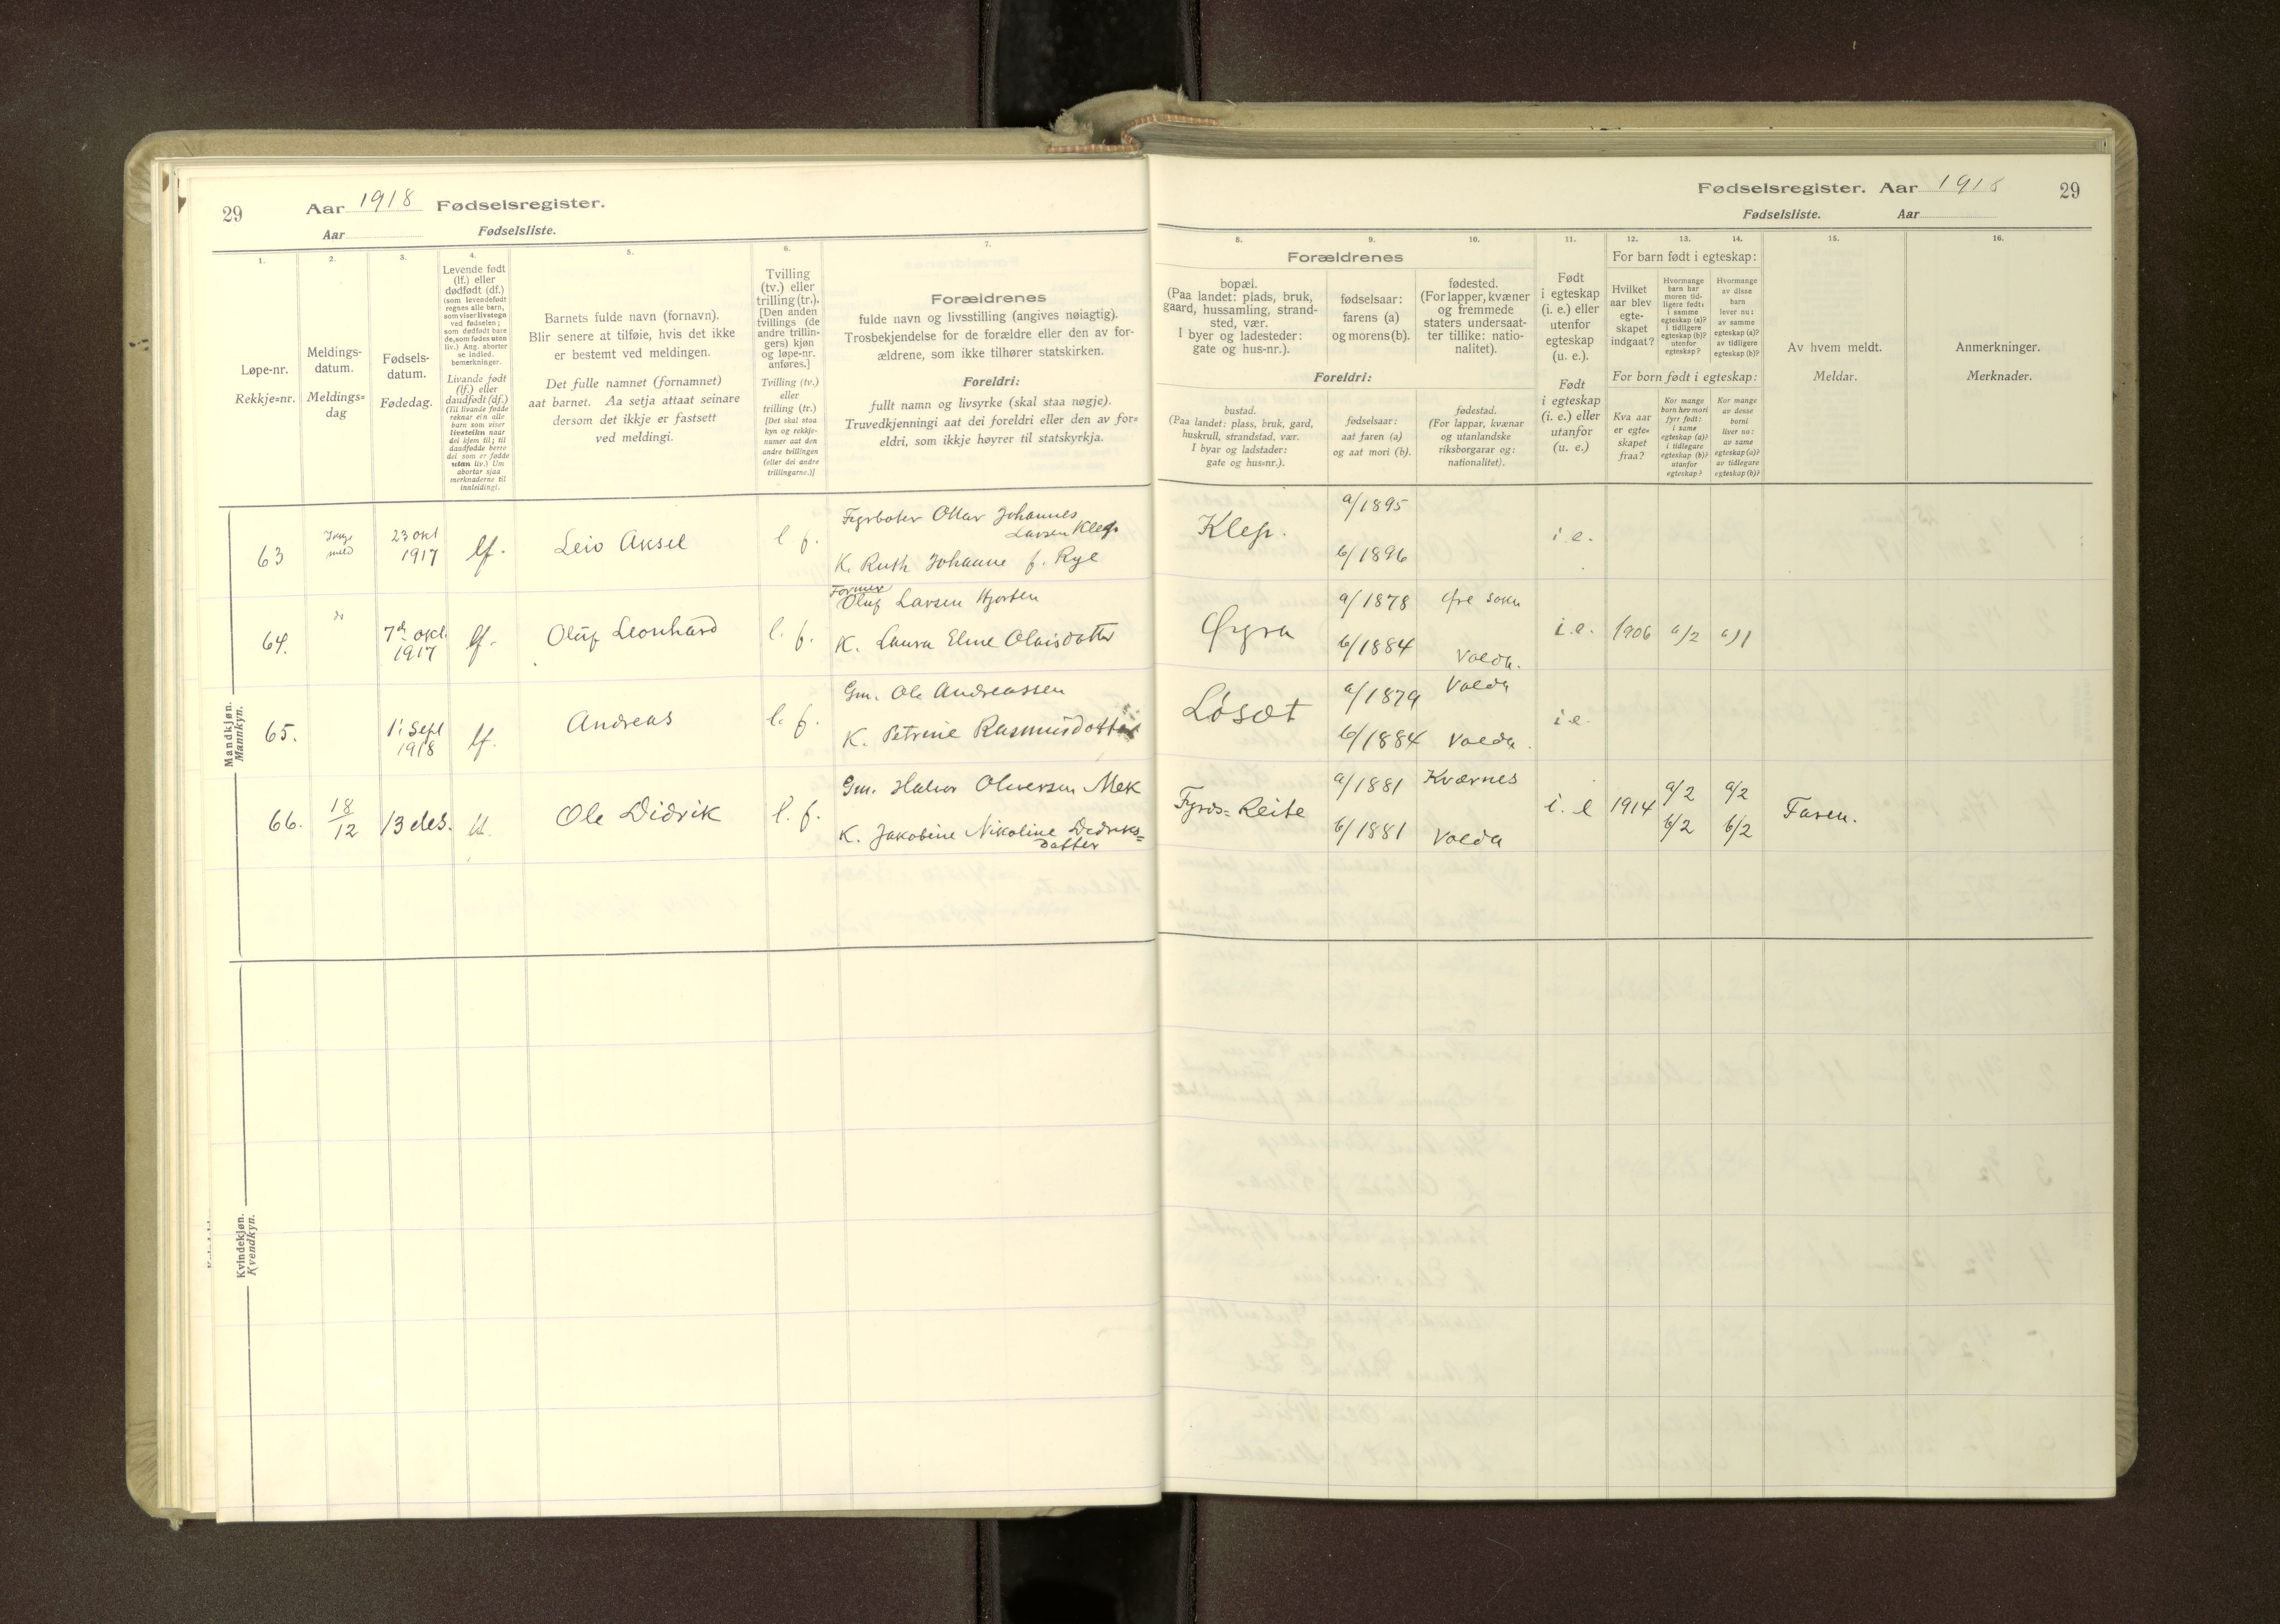 29
Aar 1918 Fødselsregister.
Aar Fødselsliste.
1.
2.
3.
4.
5.
6.
7.
Løpe-nr.
Rekkje=nr.
Meldings-
datum.
Meldings=
dag
Fødsels-
datum.
Fødedag.
Levende født
(lf.) eller
dødfødt (df.)
(som levendefødt
regnes alle barn,
som viser livstegn
ved fødselen;
som dødfødt bare
de, som fødes uten
liv.) Ang. aborter
se indled.
bemerkninger.
Livande født
(lf.) eller
daudfødt (df.)
(Til livande fødde
reknar ein alle
barn som viser
livsteikn naar
dei kjem til; til
daudfødde berre
dei som er fødde
utan liv.) Um
abortar sjaa
merknaderne til
innleidingi.
Barnets fulde navn (fornavn).
Blir senere at tilføie, hvis det ikke
er bestemt ved meldingen.
Det fulle namnet (fornamnet)
aat barnet. Aa setja attaat seinare
dersom det ikkje er fastsett
ved meldingi.
Tvilling
(tv.) eller
trilling (tr.).
[Den anden
tvillings (de
andre trillin-
gers) kjøn
og løpe-nr.
anføres.]
Tvilling (tv.)
eller
trilling (tr.)
[Det skal staa
kyn og rekkje-
numer aat den
andre tvillingen
(eller dei andre
trillingarne.)]
Forældrenes
fulde navn og livsstilling (angives nøiagtig).
Trosbekjendelse for de forældre eller den av for-
ældrene, som ikke tilhører statskirken.
Foreldri:
fullt namn og livsyrke (skal staa nøgje).
Truvedkjenningi aat dei foreldri eller den av for=
eldri, som ikkje høyrer til statskyrkja.
Mandkjøn.
Mannkyn.
63
meld
23 okt
1917
lf.
Leiv Aksel
l f.
Fyrbøter Ottar Johannes
Larsen Klep
K. Ruth Johanne f. Rye
64.
do
7de okt.
1917
lf.
Oluf Leonhard
l. f.
Former
Oluf Larsen Hjorten
K. Laura Eline Olaisdatter
65.
1' Sept
1918
lf.
Andreas
l. f.
Gm. Ole Andreassen
K. Petrine Rasmusdatter
66.
18/12
13 des.
lf.
Ole Didrik
l. f.
Gm. Halvor Oliversen Mek
K. Jakobine Nikoline Didriks=
datter
Kvindekjøn.
Kvendkyn.
Fødselsregister. Aar 1918
29
Fødselsliste. Aar
8.
9.
10.
11.
12.
13.
14.
15.
16.
Forældrenes
bopæl.
(Paa landet: plads, bruk,
gaard, hussamling, strand-
sted, vær.
I byer og ladesteder:
gate og hus-nr.).
fødselsaar:
farens (a)
og morens (b).
fødested.
(For lapper, kvæner
og fremmede
staters undersaat-
ter tillike: natio-
nalitet).
Foreldri:
bustad.
(Paa landet: plass, bruk, gard,
huskrull, strandstad, vær.
I byar og ladstader:
gate og hus=nr.).
fødselsaar:
aat faren (a)
og aat mori (b).
fødestad.
(For lappar, kvænar
og utanlandske
riksborgarar og:
nationalitet).
Født
i egteskap
(i. e.) eller
utenfor
egteskap
(u. e.).
Født
i egteskap
(i. e.) eller
utanfor
(u. e.)
For barn født i egteskap:
Hvilket
aar blev
egte-
skapet
indgaat?
Hvormange
barn har
moren tid-
ligere født:
i samme
egteskap (a)?
i tidligere
egteskap (b)?
utenfor
egteskap?
Hvormange
av disse
barn
lever nu:
av samme
egteskap (a)?
av tidligere
egteskap (b)?
For born født i egteskap:
Kva aar
er egte=
skapet
fraa?
Kor mange
born hev mori
fyrr født:
i same
egteskap (a)?
i tidlegare
egteskap (b)?
utanfor
egteskap?
Kor mange
av desse
borni
liver no:
av same
egteskap (a)?
av tidlegare
egteskap (b)?
Av hvem meldt.
Meldar.
Anmerkninger.
Merknader.
Klep.
a/1895
b/1896
i. e.
Øyra
a/1878
b/1884
Øre sokn
Volda.
i. e.
1906
a/2
a/1
Løsæt
a/1879
b/1884
Volda
Volda.
i e.
Fyrds=Reite
a/1881
b/1881
Kværnes
Volda
i. e
1914
a/2
b/2
a/2
b/2
Faren.